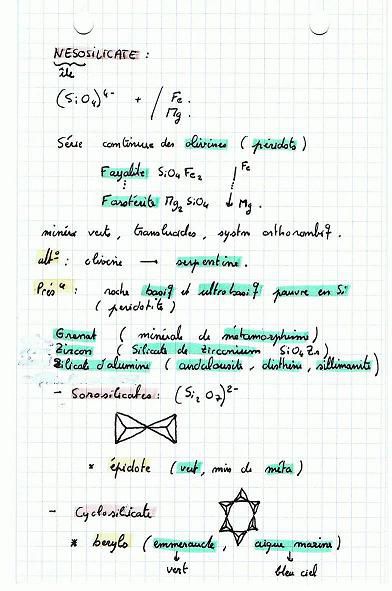 NESOSILICATE :
île
(SiO4)4- + / Fe.
Mg.
Série continue des olivines ( péridots )
Fayalite SiO4 Fe2 | Fe
Forstérite Mg2 SiO4 ↓ Mg.
minéra verts, translucides, systm orthorombiq.
alt° : olivine → serpentine.
Prés° : roche basiq et ultrabasiq pauvre en Si
( péridotite )
Grenat ( minérale de métamorphisme )
Zircon ( Silicate de zirconium SiO4Zr )
Silicate d'alumine ( andalousite, disthène, sillimanite )
- Sorosilicates : (Si2O7)2-
* épidote ( vert, min de méta )
- Cyclosilicate
* beryls ( emmeraude, aigue marine )
↓ ↓
vert bleu ciel